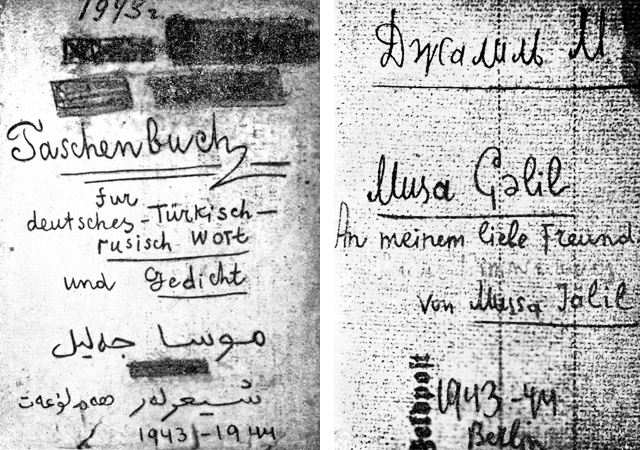 1943 г.
Taschenbuch
fur
deutsches - Türkisch —
rusisch Wort
und Gedicht
موسا جەلیل
شیعرلەر هەم لۇغەت
1943 - 1944
Джалиль М
Musa Gəlil
An meinem liebe Freund
von Mussa Jalil
Feldpost
1943 - 44
Berlin